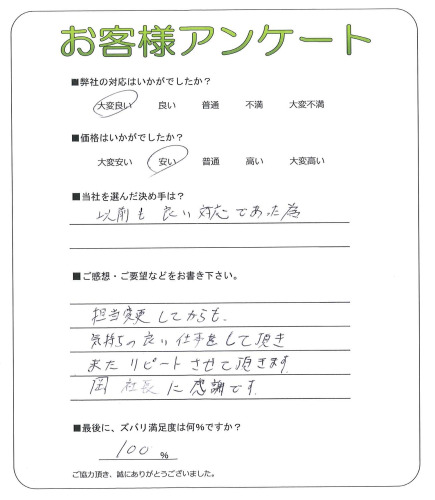 お客様アンケート
■弊社の対応はいかがでしたか?
大変良い 良い 普通 不満 大変不満
■価格はいかがでしたか?
大変安い 安い 普通 高い 大変高い
■当社を選んだ決め手は?
以前も良い対応であった為
■ご感想・ご要望などをお書き下さい。
担当変更してからも、
気持ちの良い仕事をして頂き
またリピートさせて頂きます
岡 社長に感謝です
■最後に、ズバリ満足度は何%ですか?
100 %
ご協力頂き、誠にありがとうございました。